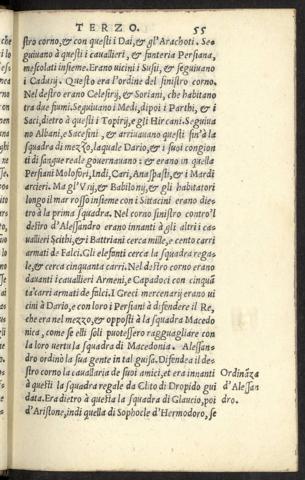 TERZO. 55
stro corno, & con questi i Dai, & gl'Arachoti. Se-
guiuano à questi i cauallieri, & fanteria Persiana,
mescolati insieme. Erano uicini i Susii, & seguiuano
i Cadusij. Questo era l'ordine del sinistro corno.
Nel destro erano Celesirij, & Soriani, che habitano
tra due fiumi. Seguiuano i Medi, dipoi i Parthi, & i
Saci, dietro à questi i Topirij, e gli Hircani. Seguiua
no Albani, e Sacesini, & arriuauano questi fin'à la
squadra di mezzo, la quale Dario, & i suoi congion
ti di sangue reale gouernauano: & erano in quella
Persiani Molofori, Indi, Cari, Anaspasti, & i Mardi
arcieri. Ma gl'Vxij, & Babilonij, & gli habitatori
longo il mar rosso insieme con i Sittacini erano die-
tro à la prima squadra. Nel corno sinistro contro'l
destro d'Alessandro erano innanti à gli altri i ca-
uallieri Scithi, & i Battriani cerca mille, e cento carri
armati de Falci. Gli elefanti cerca la squadra rega-
le, & cerca cinquanta carri. Nel destro corno erano
dauanti i cauallieri Armeni, e Capadoci con cinquā
ta carri armati de falci. I Greci mercenarij erano ui
cini à Dario, e con loro i Persiani à difendere il Re,
che era nel mezzo, et opposti à la squadra Macedo
nica, come se elli soli potessero ragguagliare con
la loro uertu la squadra di Macedonia. Alessan-
dro ordinò la sua gente in tal guisa. Difendea il de-
stro corno la cauallaria de suoi amici, et era innanti
à questi la squadra regale da Clito di Dropido gui
data. Era dietro à questa la squadra di Glaucio, poi
d'Aristone, indi quella di Sophocle d'Hermodoro, se
Ordināza
d'Alessan
dro.